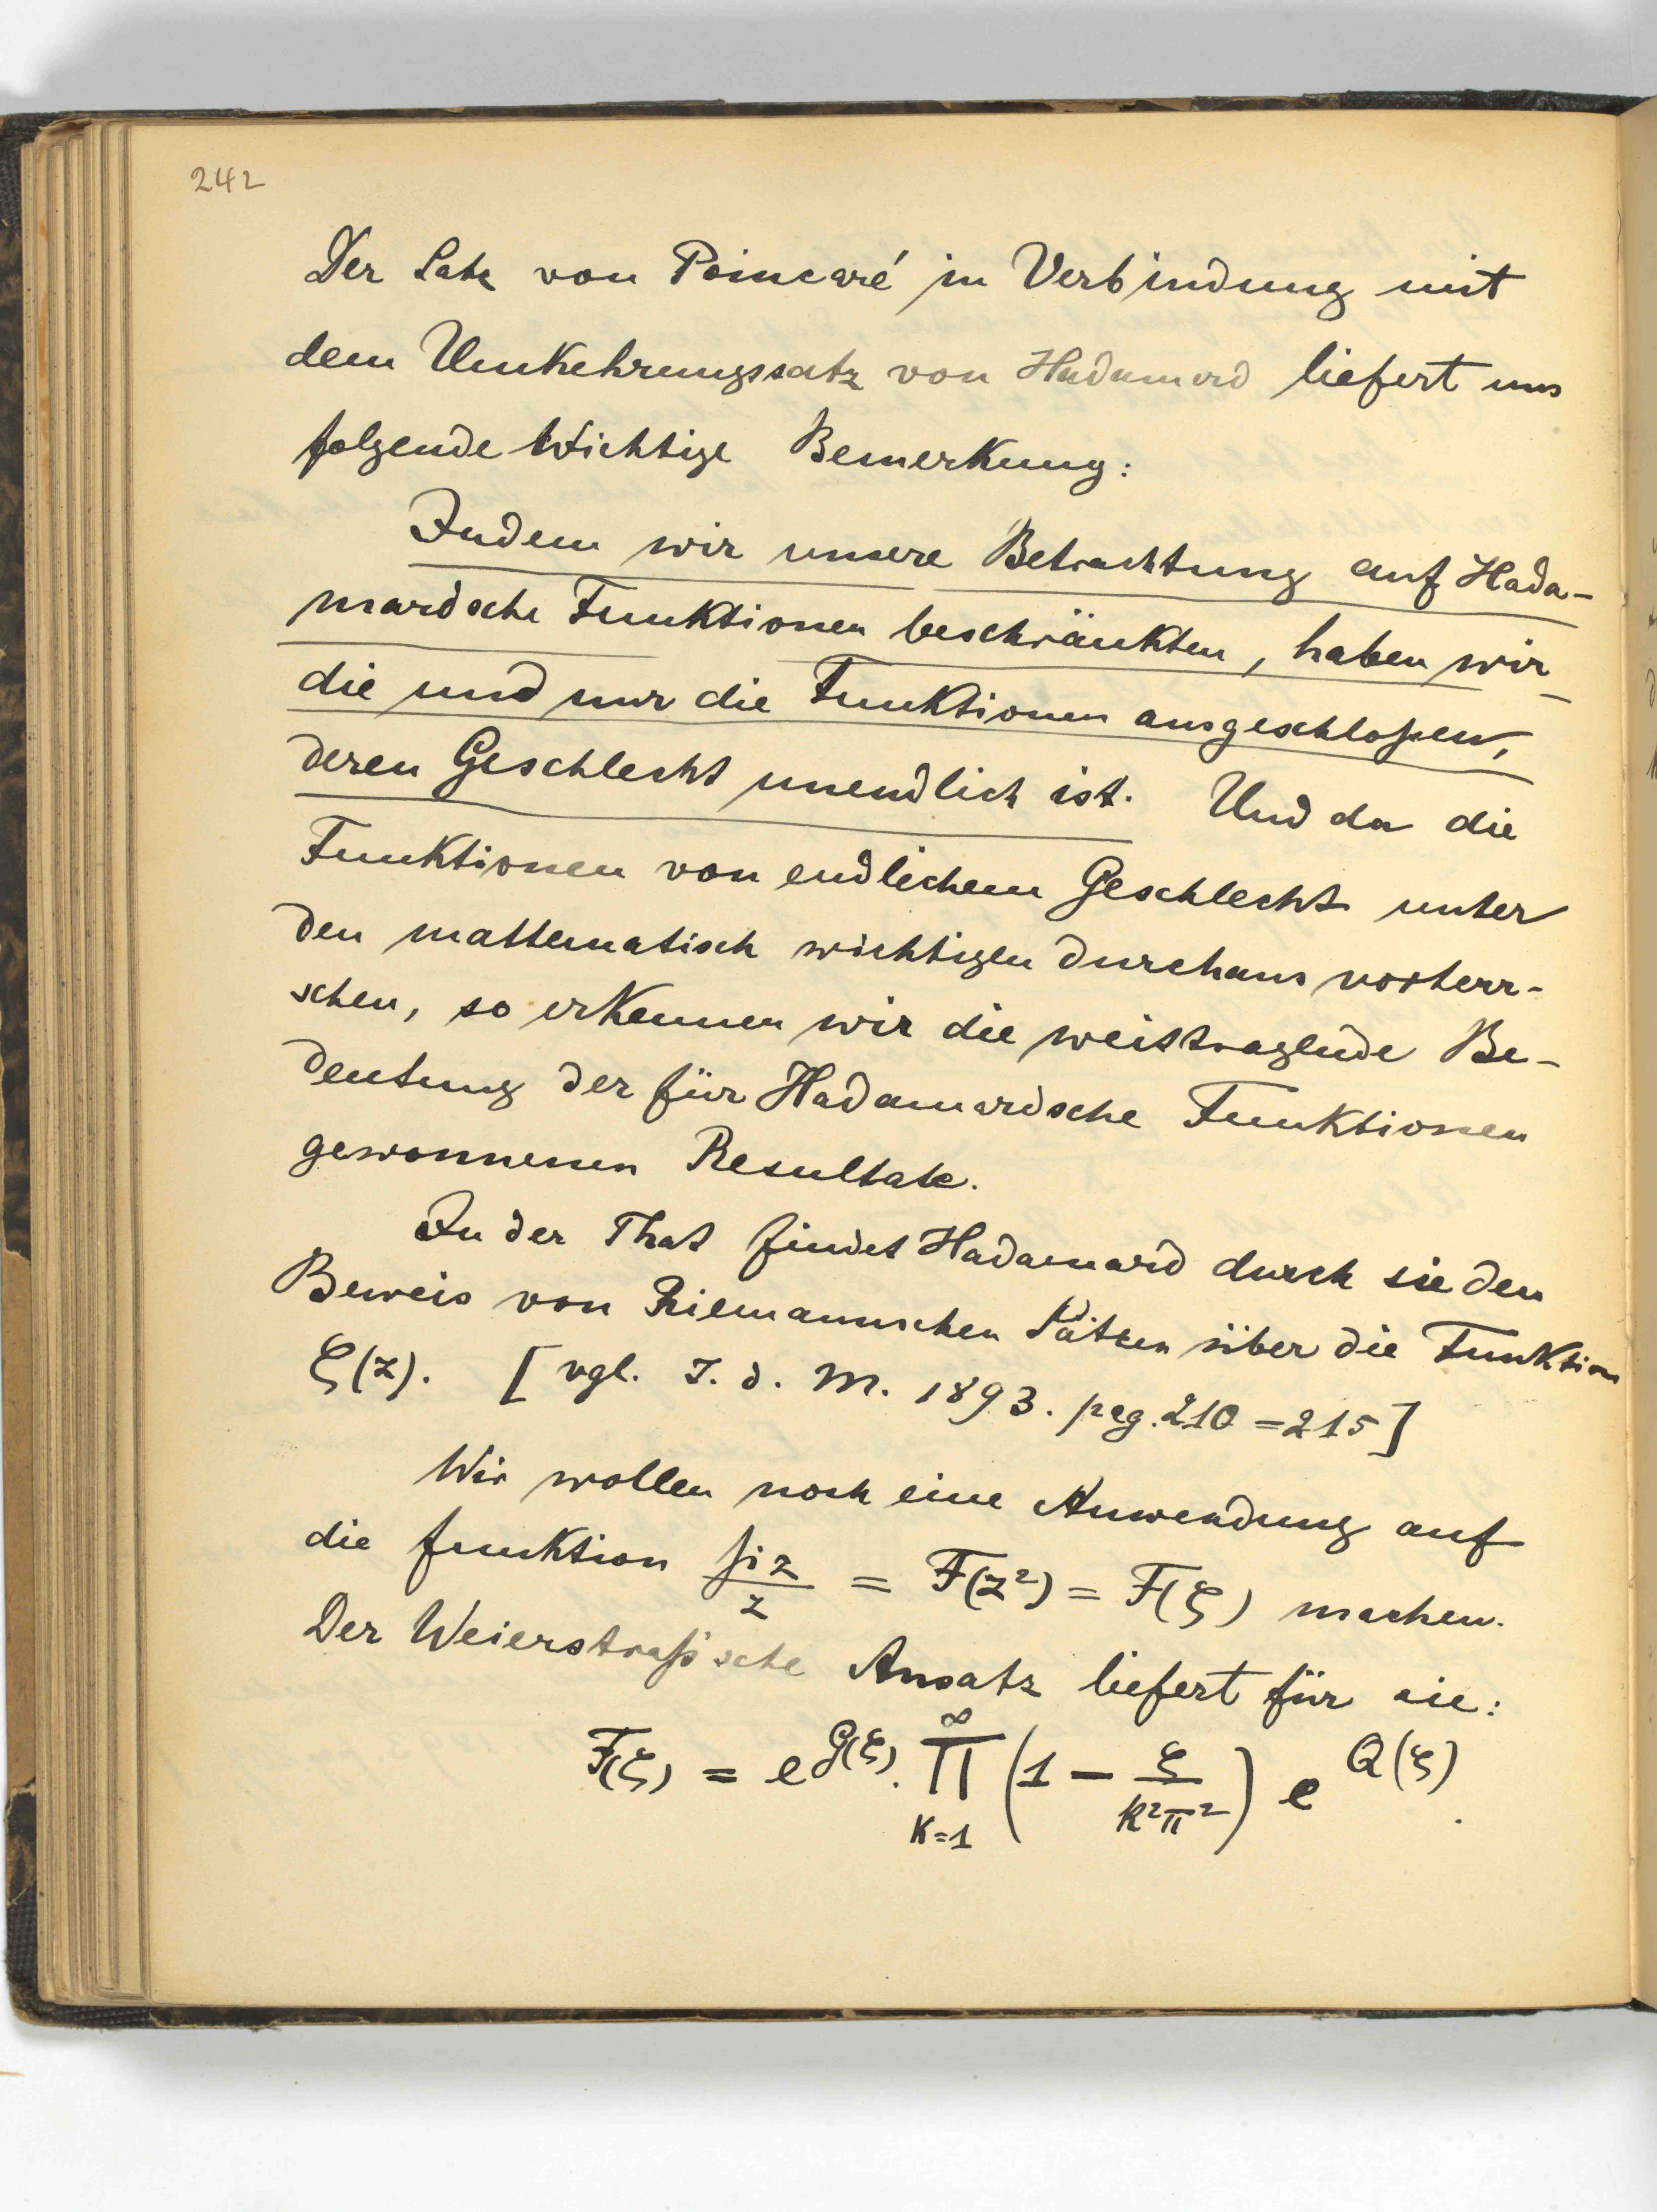 242
Der Satz von Poincaré in Verbindung mit
dem Umkehrungssatz von Hadamard liefert uns
folgende wichtige Bemerkung:
Indem wir unsere Betrachtung auf Hada-
mardsche Funktionen beschränkten, haben wir
die und nur die Funktionen ausgeschloßen,
deren Geschlecht unendlich ist. Und da die
Funktionen von endlichem Geschlecht unter
den mathematisch wichtigen durchaus vorherr-
schen, so erkennen wir die weittragende Be-
deutung der für Hadamardsche Funktionen
gewonnenen Resultate.
In der That findet Hadamard durch sie den
Beweis von Riemannschen Sätzen über die Funktion
ζ(z). [vgl. J. d. M. 1893. pag. 210 = 215]
Wir wollen noch eine Anwendung auf
die Funktion si z / z = F(z²) = F(ζ) machen.
Der Weierstraß'sche Ansatz liefert für sie:
F(ζ) = e^{G(ζ)} · ∏_{k=1}^{∞} (1 − ζ/(k²π²)) e^{Q(ζ)}.